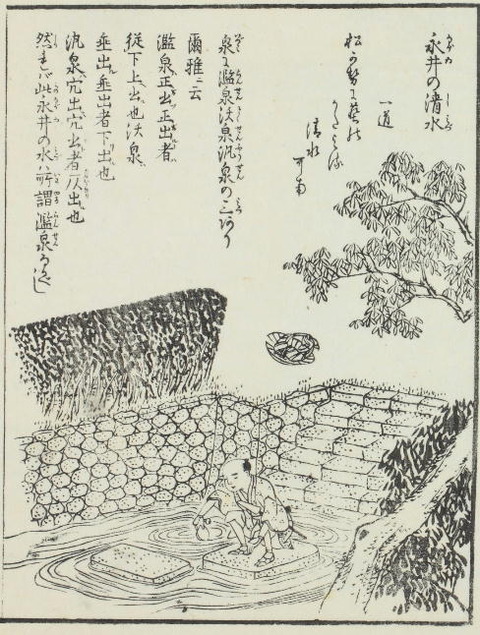 永井の清水
一道
清水可南
泉に濫泉沃泉汎泉の三つあり
爾雅ニ云
濫泉正出正出者
従下上出也沃泉
垂出垂出者下出也
汎泉穴出穴出者仄出也
然れバ此永井の水ハ所謂濫泉なるべし